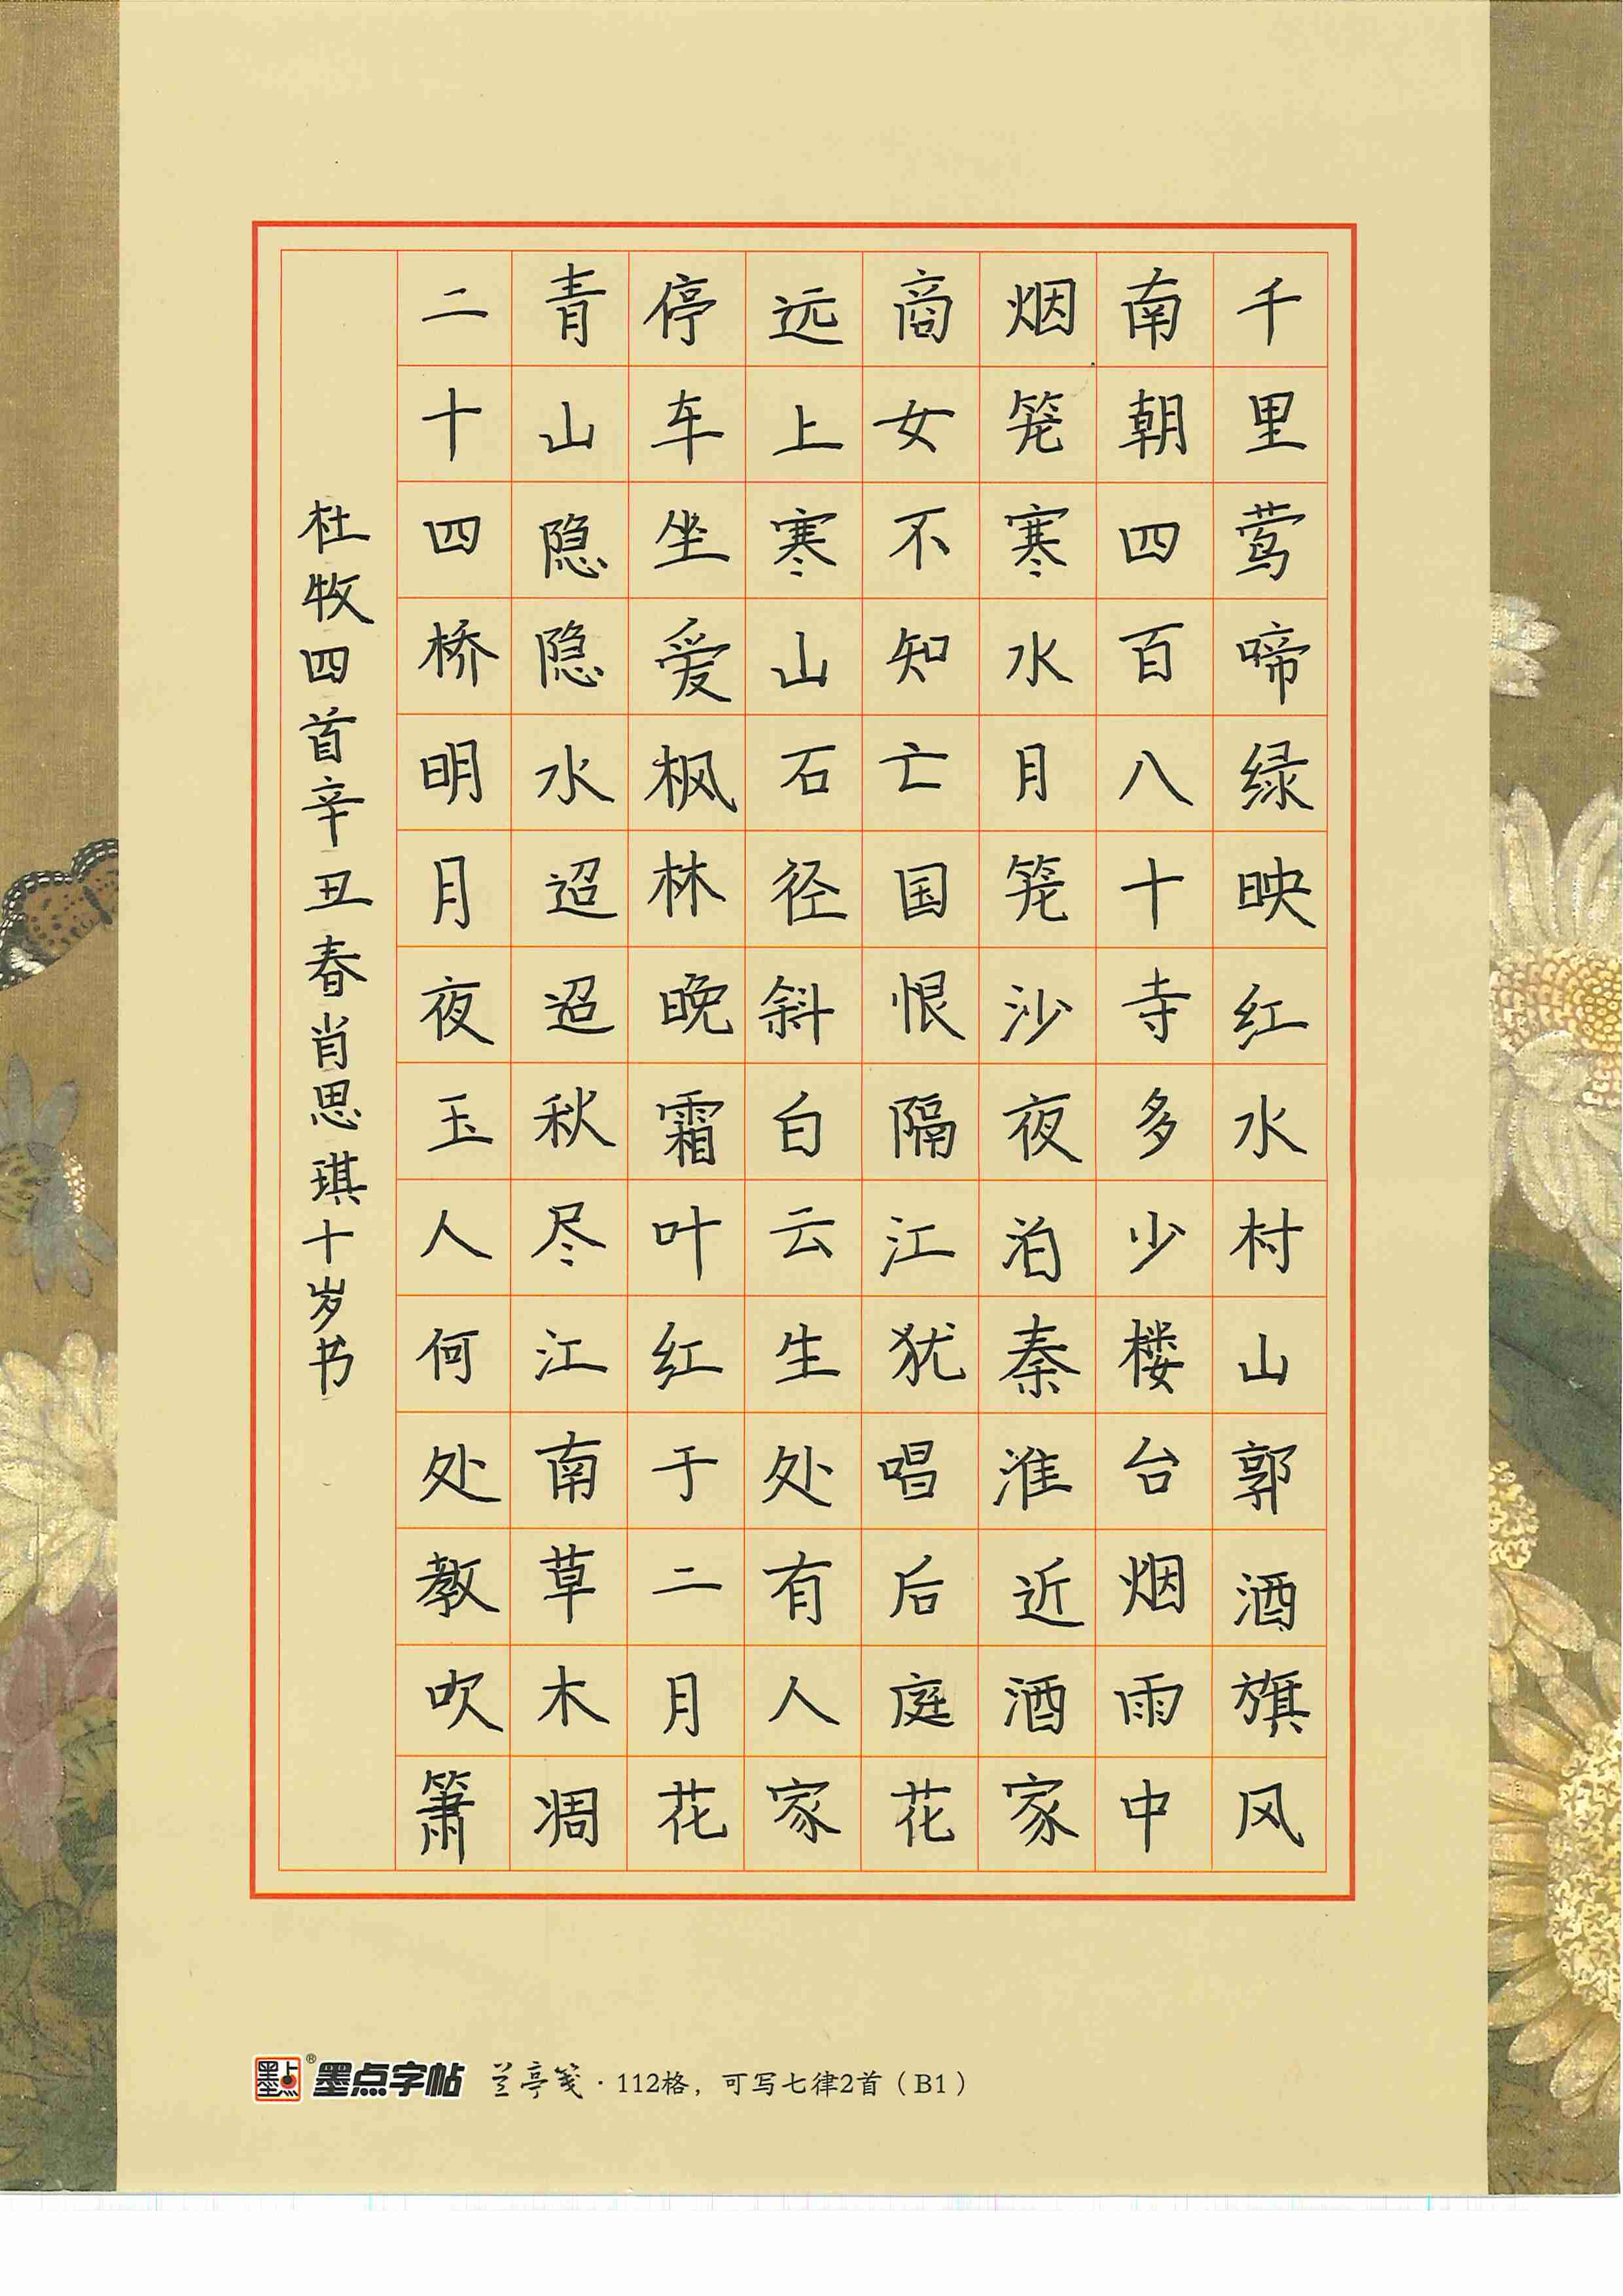 千里莺啼绿映红水村山郭酒旗风
南朝四百八十寺多少楼台烟雨中
烟笼寒水月笼沙夜泊秦淮近酒家
商女不知亡国恨隔江犹唱后庭花
远上寒山石径斜白云生处有人家
停车坐爱枫林晚霜叶红于二月花
青山隐隐水迢迢秋尽江南草木凋
二十四桥明月夜玉人何处教吹箫
杜牧四首辛丑春肖思琪十岁书
墨点®墨点字帖 兰亭笺·112格，可写七律2首（B1）